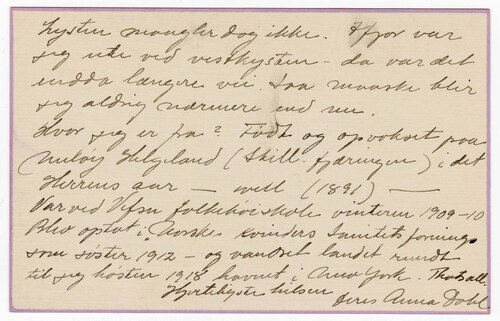 Lysten mangler dog ikke. Ifjor var
jeg ute ved vestkysten - da var det
endda længere vei. Saa maaske blir
jeg aldrig nærmere end nu.
Hvor jeg er fra? Født og opvokset paa
Helgeland (Skill-fjæringen) i det
Herrens aar — well (1891) —
Var ved Vefsn folkehøiskole vinteren 1909-10
Blev optat i "Norske kvinders Sanitetsforening"
som søster 1912 - og vandret landet rundt
til jeg høsten 1918 havnet i New York. That's all.
Hjerteligste hilsen
Deres Anna Dahl